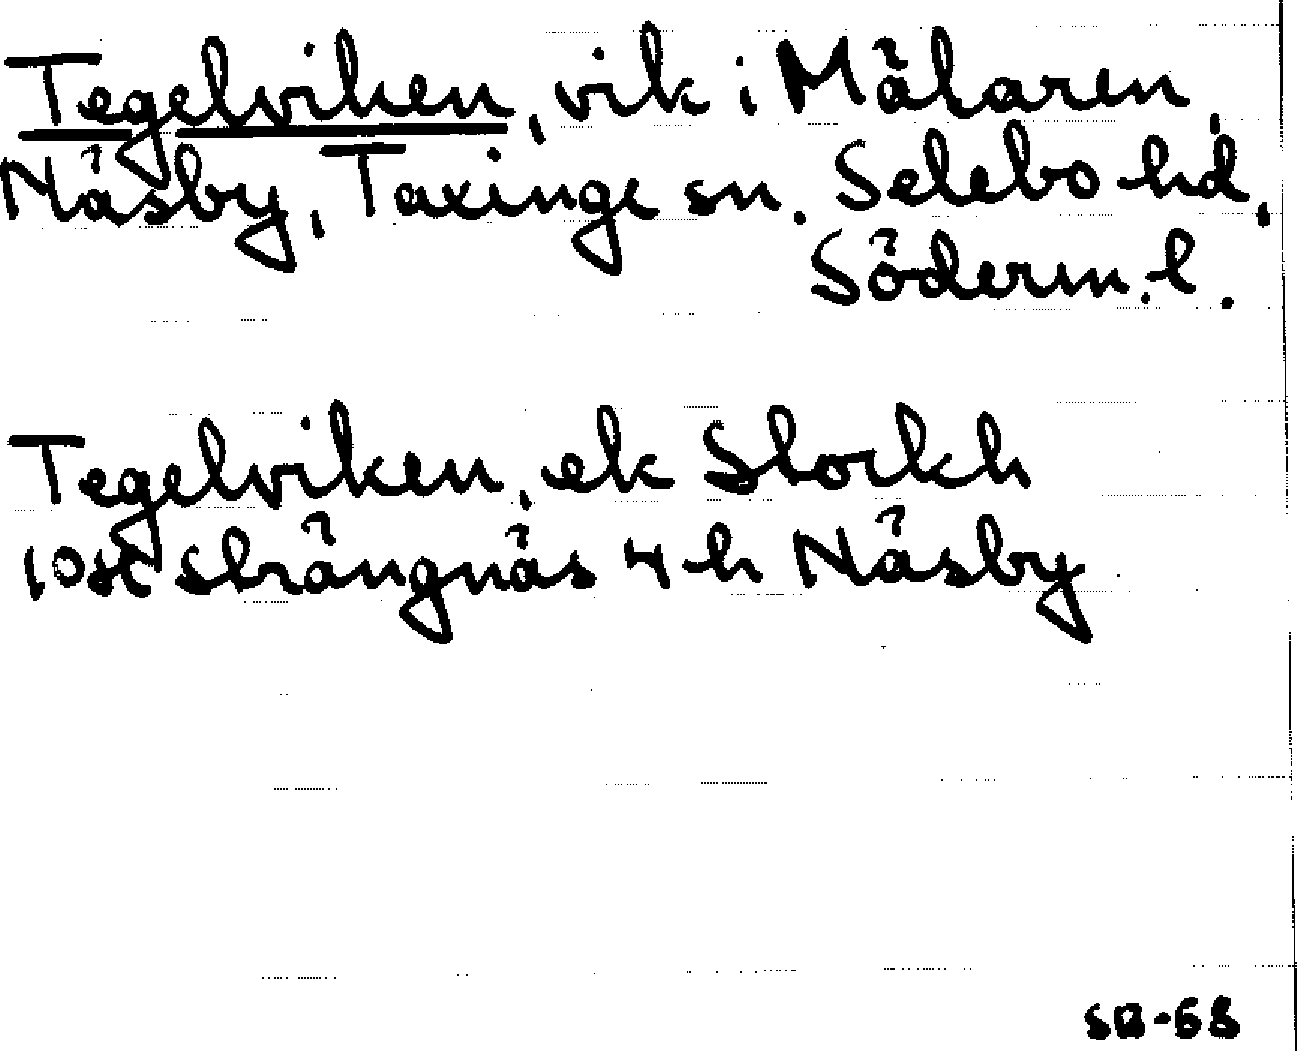 Tegelviken, vik i Mälaren,
Näsby, Taxinge sn. Selebo hd,
Söderm.l.
Tegelviken, ek Stockh
10SV Strängnäs 4 h Näsby